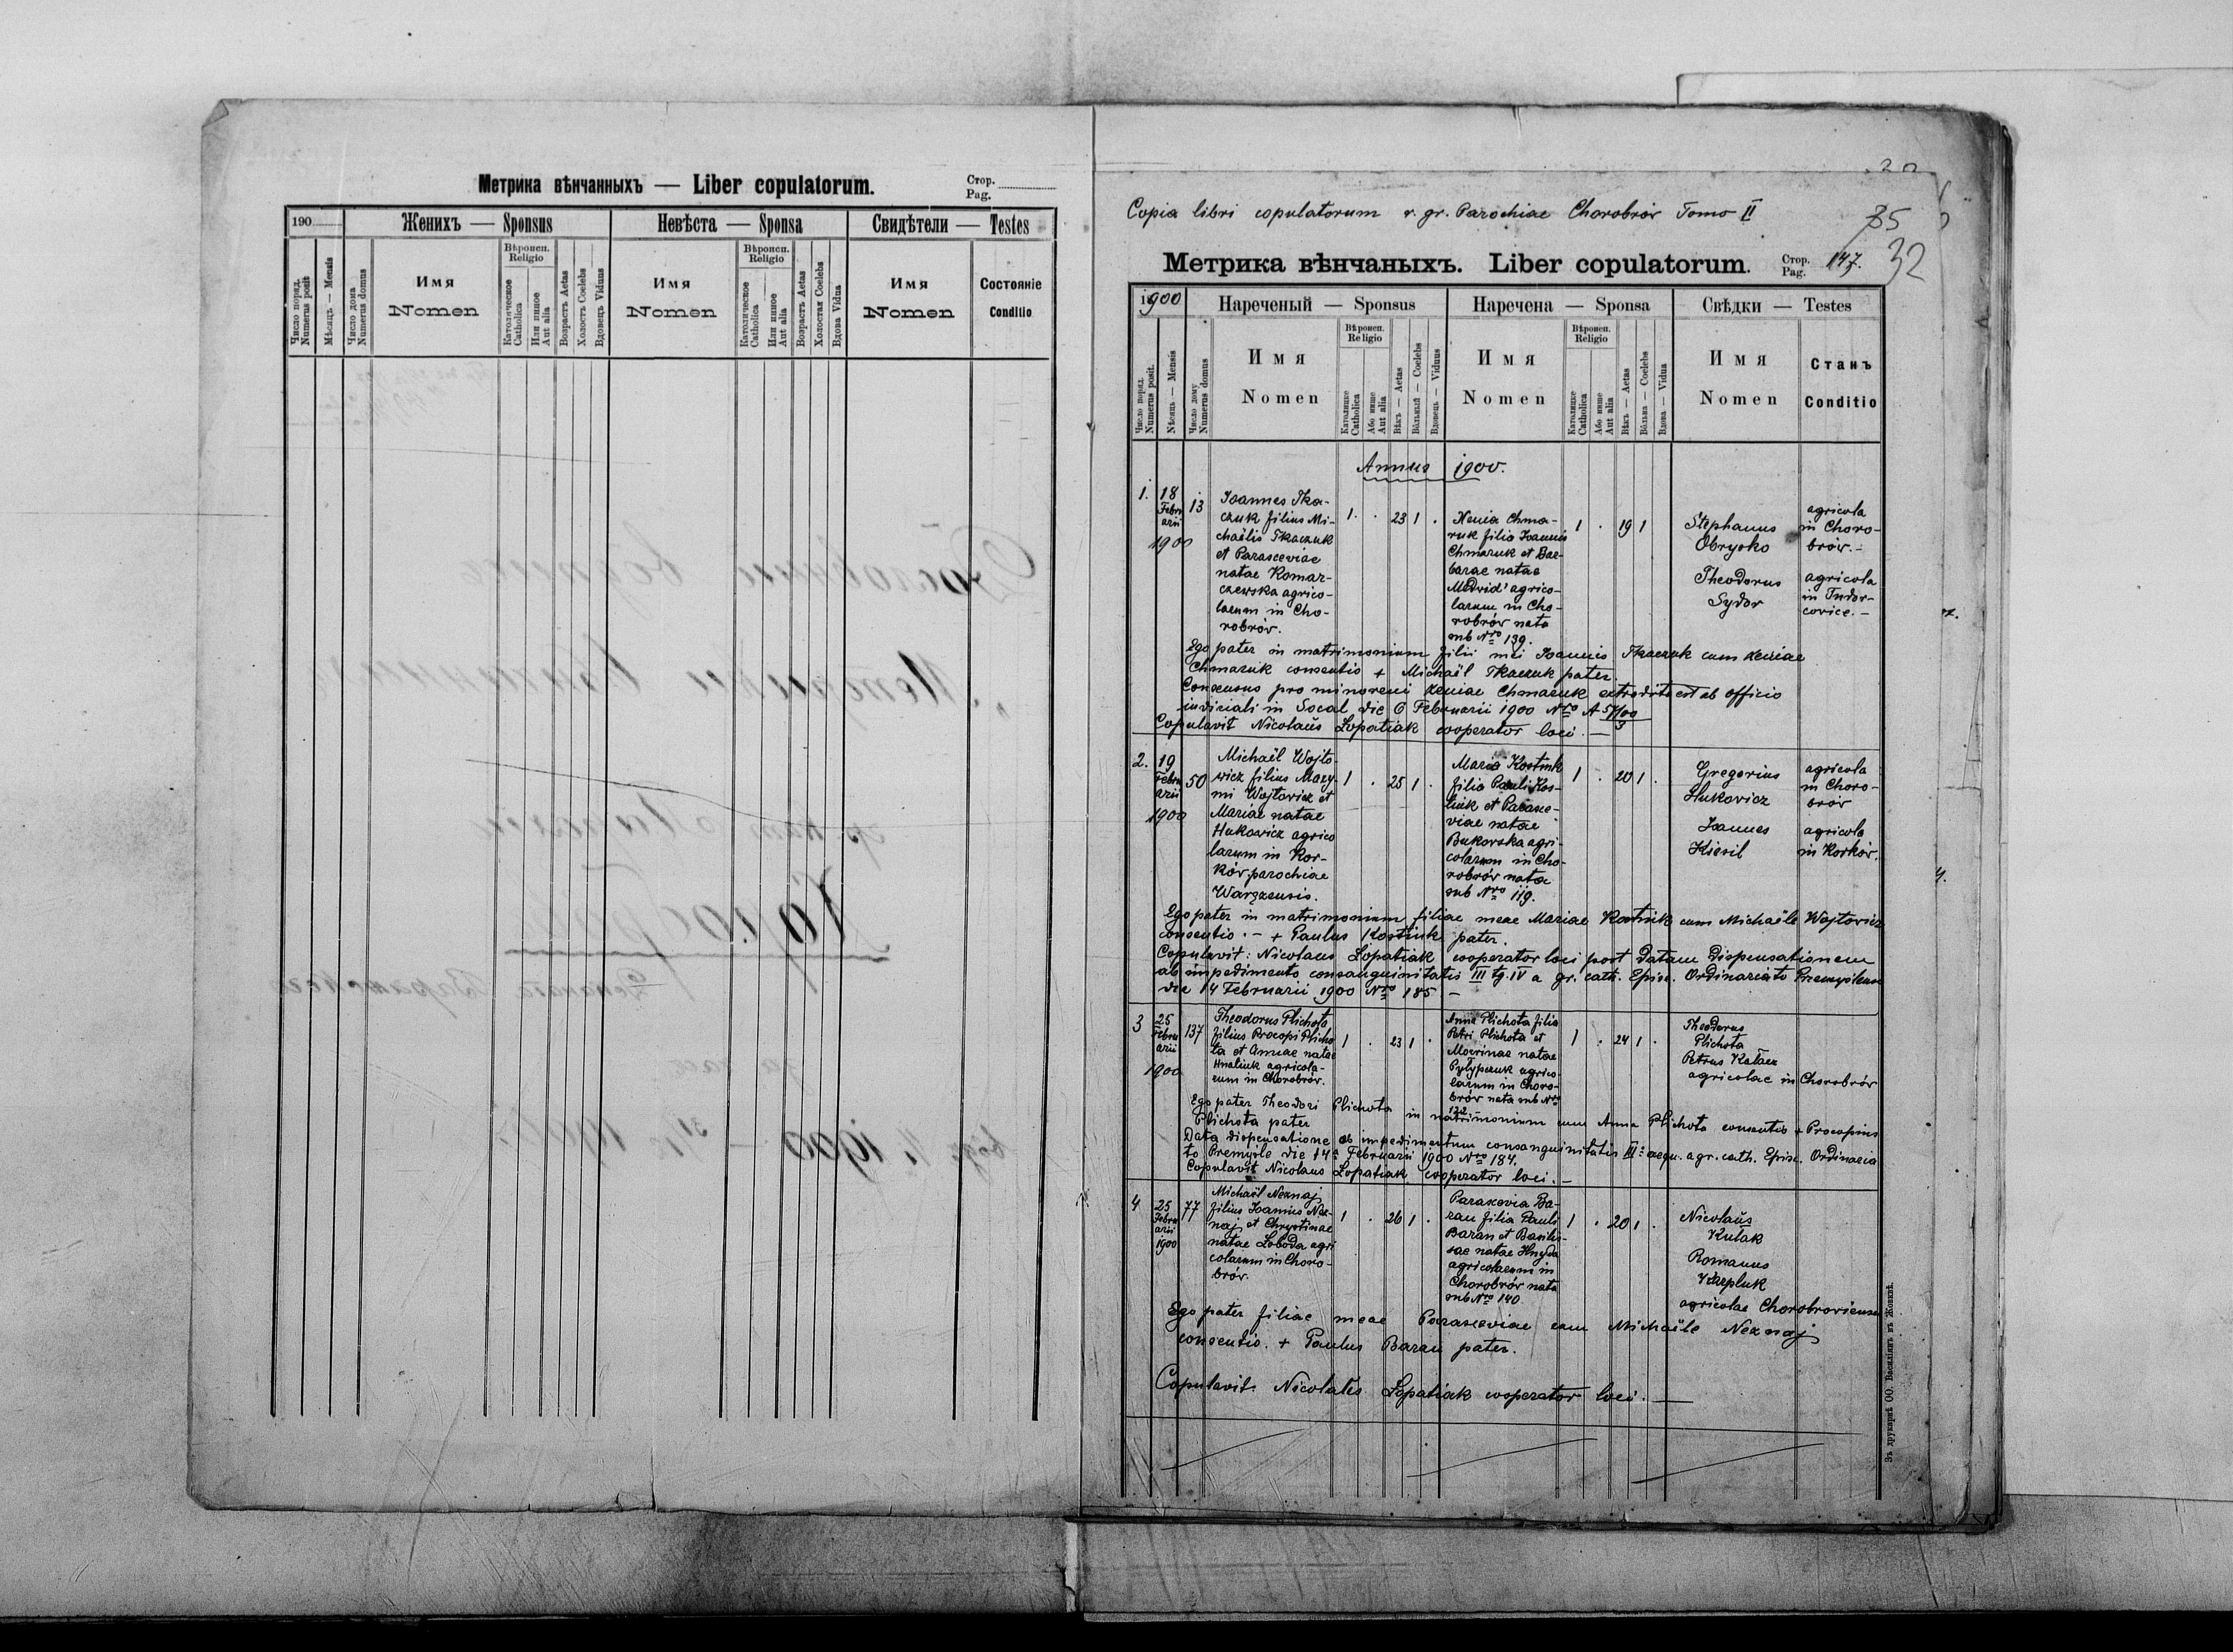 Метрика вѣнчанныхъ — Liber copulatorum.
Стор.
Pag.
190
Женихъ — Sponsus
Невѣста — Sponsa
Свидѣтели — Testes
Число поряд.
Numerus posit
Мѣсяцъ — Mensis
Число дома
Numerus domus
Имя
Nomen
Вѣроисп.
Religio
Католическое
Catholica
Или иное
Aut alia
Возрастъ Aetas
Холостъ Coelebs
Вдовецъ Viduus
Имя
Nomen
Вѣроисп.
Religio
Католическое
Catholica
Или иное
Aut alia
Возрастъ Aetas
Холостая Coelebs
Вдова Vidua
Имя
Nomen
Состояніе
Conditio
Copia libri copulatorum r. gr. Parochiae Chorobrów Tomo II
35
32
Метрика вѣнчаныхъ. Liber copulatorum.
Стор.
Pag.
147.
1900
Нареченый — Sponsus
Наречена — Sponsa
Свѣдки — Testes
Число поряд.
Numerus posit.
Мѣсяць — Mensis
Число дому
Numerus domus
Имя
Nomen
Вѣроисп.
Religio
Католицке
Catholica
Або инше
Aut alia
Вѣкъ — Aetas
Вôльный — Coelebs
Вдовець — Viduus
Имя
Nomen
Вѣроисп.
Religio
Католицке
Catholica
Або инше
Aut alia
Вѣкъ — Aetas
Вôльна — Coelebs
Вдова — Vidua
Имя
Nomen
Станъ
Conditio
Annus 1900.
1.
18
Febru
arii
1900
13
Joannes Tka-
czuk filius Mi-
chaëlis Tkaczuk
et Parasceviae
natae Komar-
czewska agrico-
larum in Cho-
robrów.
1. . 23 1 .
Xenia Chma-
ruk filia Joannis
Chmaruk et Bar-
barae natae
Medvid' agrico-
larum in Cho-
robrów nata
sub Nro 139.
1 . 19 1
Stephanus
Obryćko
agricola
in Choro-
brów.-
Theodorus
Sydor
agricola
in Tudor-
covice.-
Ego pater in matrimonium filii mei Joannis Tkaczuk cum Xeniae
Chmaruk consentio + Michaël Tkaczuk pater.
Consensus pro minoreni Xeniae Chmaruk extradita est ab officio
iudiciali in Socal die 6 Februarii 1900 Nro A
Copulavit Nicolaŭs Łopatiak cooperator loci.—
2.
19
Febru
arii
1900
50
Michaël Wojto-
wicz filius Maxy-
mi Wojtowicz et
Mariae natae
Hukowicz agrico
larum in Kor-
ków parochiae
Warężensis.
1 . 25 1 .
Maria Kostiuk
filia Pauli Kos-
tiuk et Parasce-
viae natae
Bukowska agri-
colarum in Cho-
robrów nata
sub Nro 119.
1 . 20 1 .
Gregorius
Hukowicz
agricola
in Choro-
brów
Joannes
Kisil
agricola
in Korków.
Ego pater in matrimonium filiae meae Mariae Kostiuk cum Michaële Wojtowicz
consentio.- + Paulus Kostiuk pater.
Copulavit: Nicolaus Łopatiak cooperator loci post datam dispensationem
ab impedimento consanguinitatis III tg. IV a gr. cath. Episc. Ordinariato Premysliensi
die 14 Februarii 1900 Nro 185 —
3
25
Febru
arii
1900
137
Theodorus Plichota
filius Procopi Plicho
ta et Annae natae
Hnatiuk agricola-
rum in Chorobrów.
1 . 23 1 .
Anna Plichota filia
Petri Plichota et
Marinae natae
Pylypczuk agrico-
larum in Choro-
brów nata sub Nro
1 . 24 1 .
Theodorus
Plichota
Petrus
agricolae in Chorobrów
Ego pater Theodori Plichota in matrimonium cum Anna Plichota consentio + Procopius
Plichota pater
Data dispensatione ab impedimentum consanguinitatis III aequ. a gr. cath. Episc. Ordinaria
to Premysle die 14 Februarii 1900 Nro 184.
Copulavit Nicolaus Łopatiak cooperator loci.—
4
25
Febru
arii
1900
77
Michaël Neznaj
filius Joannis Nez-
naj et Chrystinae
natae Łoboda agri
colarum in Choro-
brów.
1 . 26 1 .
Parascevia Ba-
ran filia Pauli
Baran et Basilis-
sae natae Hnyda
agricolarum in
Chorobrów nata
sub Nro 140
1 . 20 1 .
Nicolaŭs
Kułak
Romanus
agricolae Chorobrovienses
Ego pater filiae meae Parasceviae cum Michaële Neznaj
consentio. + Paulus Baran pater.
Copulavit Nicolaŭs Łopatiak cooperator loci.—
Зъ друкарнѣ ОО. Василіянъ въ Жовквѣ.